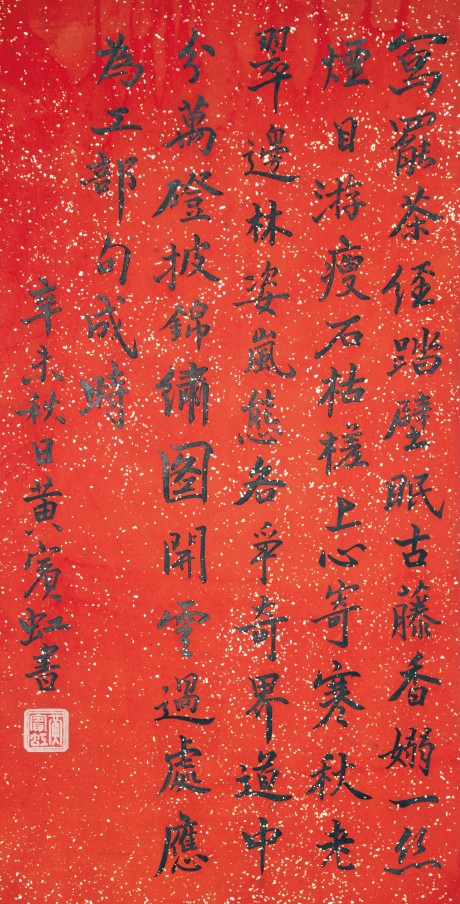 寫罷茶經踏壁眠古藤香嫋一絲
煙目游瘦石枯槎上心寄寒秋老
翠邊林姿嵐態各爭奇界道中
分萬磴披錦繡图開雲過處應
為工部句成時
辛未秋日黃賓虹書
黃賓虹